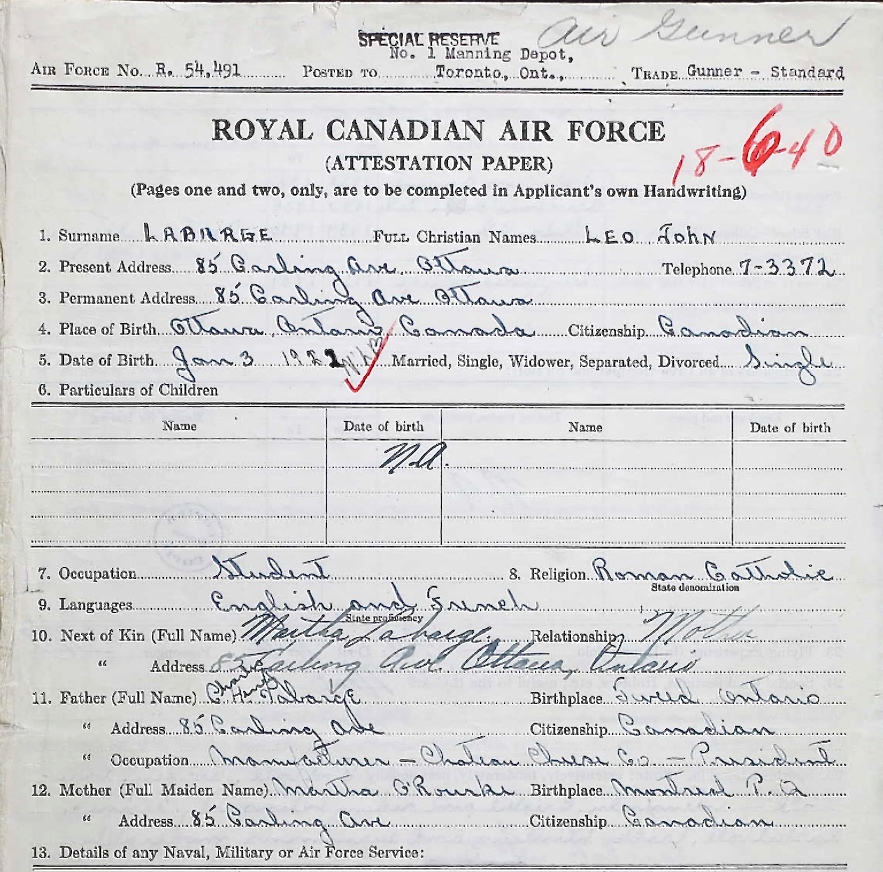 SPECIAL RESERVE Air Gunner
No. 1 Manning Depot,
AIR FORCE NO. R. 54,491 POSTED TO Toronto, Ont., TRADE Gunner - Standard
ROYAL CANADIAN AIR FORCE
18-6-40
(ATTESTATION PAPER)
(Pages one and two, only, are to be completed in Applicant's own Handwriting)
1. Surname LABARGE FULL Christian Names LEO JOHN
2. Present Address 85 Carling Ave, Ottawa Telephone 7-3372
3. Permanent Address 85 Carling Ave Ottawa
4. Place of Birth Ottawa, Ontario, Canada Citizenship Canadian
5. Date of Birth Jan 3 1921 Married, Single, Widower, Separated, Divorced Single
6. Particulars of Children
Name Date of birth Name Date of birth
N.A.
7. Occupation Student 8. Religion Roman Catholic
State denomination
9. Languages English and French
State proficiency
10. Next of Kin (Full Name) Martha Labarge. Relationship Mother
" Address 85 Carling Ave Ottawa, Ontario
11. Father (Full Name) Charles Henry Labarge Birthplace Tweed Ontario
" Address 85 Carling Ave Citizenship Canadian
" Occupation Manufacturer - Chateau Cheese Co. - President
12. Mother (Full Maiden Name) Martha O'Rourke Birthplace Montreal P.Q
" Address 85 Carling Ave Citizenship Canadian
13. Details of any Naval, Military or Air Force Service: